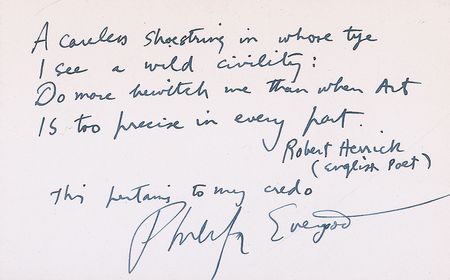 A careless shoestring in whose tye
I see a wild civility:
Do more bewitch me than when Art
Is too precise in every part.
Robert Herrick
(English Poet)
This pertains to my credo
Philip Evergood